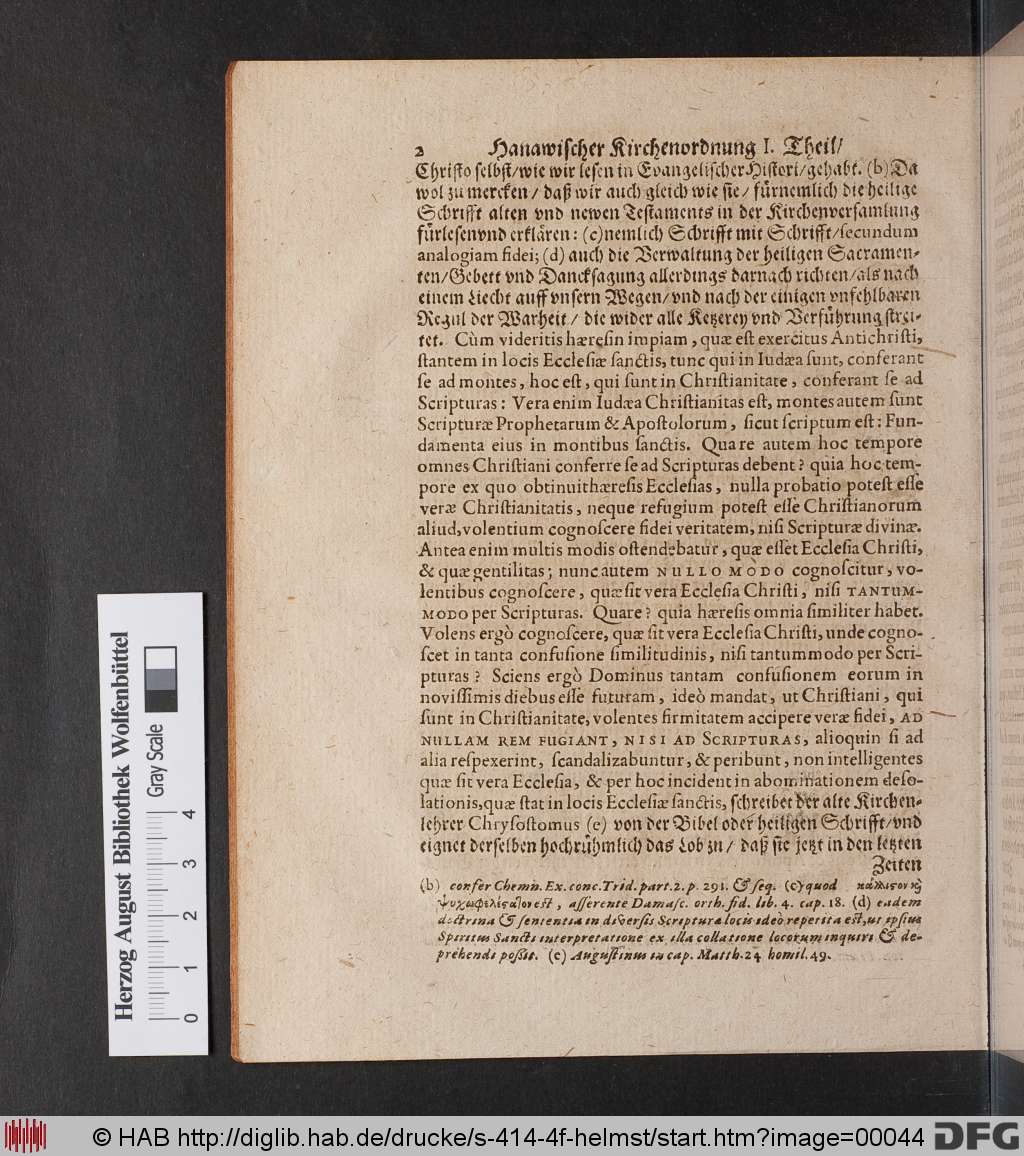 2 Hanawischer Kirchenordnung I. Theil/
Christo selbst/wie wir lesen in Evangelischer Histori/gehabt. (b) Da
wol zu mercken/ daß wir auch gleich wie sie/ fürnemlich die heilige
Schrifft alten vnd newen Testaments in der Kirchenversamlung
fürlesen vnd erklären: (c) nemlich Schrifft mit Schrifft/ secundum
analogiam fidei; (d) auch die Verwaltung der heiligen Sacramen-
ten/Gebett vnd Dancksagung allerdings darnach richten/als nach
einem Liecht auff vnsern Wegen/vnd nach der einigen vnfehlbaren
Regul der Warheit/ die wider alle Ketzerey vnd Verführung strei-
tet. Cùm videritis hæresin impiam, quæ est exercitus Antichristi,
stantem in locis Ecclesiæ sanctis, tunc qui in Iudæa sunt, conferant
se ad montes, hoc est, qui sunt in Christianitate, conferant se ad
Scripturas: Vera enim Iudæa Christianitas est, montes autem sunt
Scripturæ Prophetarum & Apostolorum, sicut scriptum est: Fun-
damenta eius in montibus sanctis. Quare autem hoc tempore
omnes Christiani conferre se ad Scripturas debent? quia hoc tem-
pore ex quo obtinuit hæresis Ecclesias, nulla probatio potest esse
veræ Christianitatis, neque refugium potest esse Christianorum
aliud, volentium cognoscere fidei veritatem, nisi Scripturæ divinæ.
Antea enim multis modis ostendebatur, quæ esset Ecclesia Christi,
& quæ gentilitas; nunc autem NULLO MODO cognoscitur, vo-
lentibus cognoscere, quæ sit vera Ecclesia Christi, nisi TANTUM-
MODO per Scripturas. Quare? quia hæresis omnia similiter habet.
Volens ergò cognoscere, quæ sit vera Ecclesia Christi, unde cogno-
scet in tanta confusione similitudinis, nisi tantummodo per Scri-
pturas? Sciens ergò Dominus tantam confusionem eorum in
novissimis diebus esse futuram, ideò mandat, ut Christiani, qui
sunt in Christianitate, volentes firmitatem accipere veræ fidei, AD
NULLAM REM FUGIANT, NISI AD SCRIPTURAS, alioquin si ad
alia respexerint, scandalizabuntur, & peribunt, non intelligentes
quæ sit vera Ecclesia, & per hoc incident in abominationem deso-
lationis, quæ stat in locis Ecclesiæ sanctis, schreibet der alte Kirchen-
lehrer Chrysostomus (e) von der Bibel oder heiligen Schrifft/vnd
eignet derselben hochrühmlich das Lob zu/ daß sie jetzt in den letzten
Zeiten
(b) confer Chemn. Ex. conc. Trid. part. 2. p. 291. & seq. (c) quod
est, asserente Damasc. orth. fid. lib. 4. cap. 18. (d) eadem
doctrina & sententia in diversis Scripturæ locis ideò repetita est, ut ipsius
Spiritus Sancti interpretatione ex illa collatione locorum inquiri & de-
prehendi possit. (e) Augustinus in cap. Matth. 24 homil. 49.
Herzog August Bibliothek Wolfenbüttel
Gray Scale
0 1 2 3 4
© HAB http://diglib.hab.de/drucke/s-414-4f-helmst/start.htm?image=00044
DFG